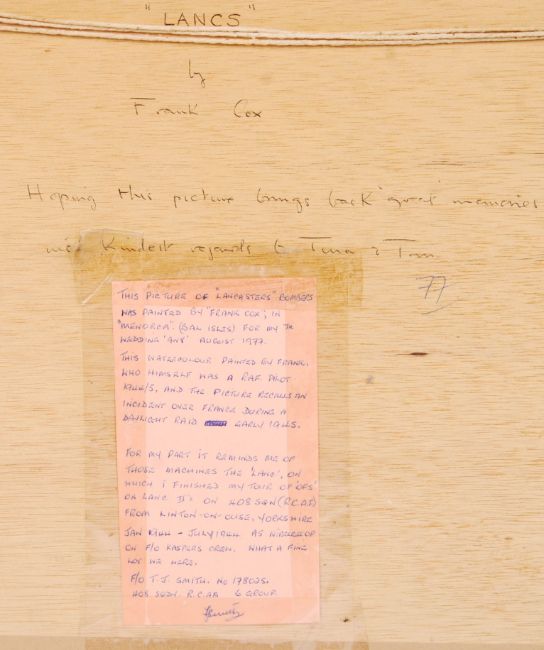 "LANCS"
by
Frank Cox
Hoping this picture brings back great memories
Kindest regards to Tina & Tom
77
THIS PICTURE OF "LANCASTERS" BOMBERS
WAS PAINTED BY "FRANK COX", IN
"MENORCA" (BAL ISLES) FOR MY
WEDDING 'ANY' AUGUST 1977.
THIS WATERCOLOUR PAINTED BY FRANK.
WHO HIMSELF WAS A RAF PILOT
1944/5, AND THE PICTURE RECALLS AN
INCIDENT OVER FRANCE DURING A
DAYLIGHT RAID EARLY 1945.
FOR MY PART IT REMINDS ME OF
THOSE MACHINES THE 'LANC', ON
WHICH I FINISHED MY TOUR OF 'OPS'
ON LANC II's ON 408 SQN (R.C.A.F)
FROM LINTON-ON-OUSE, YORKSHIRE
JAN 1944 - JULY 1944 AS
ON F/O KASPERS CREW. WHAT A FINE
LOT WE WERE.
F/O T.J. SMITH. NO 178025.
408 SQDN R.C.AF 6 GROUP